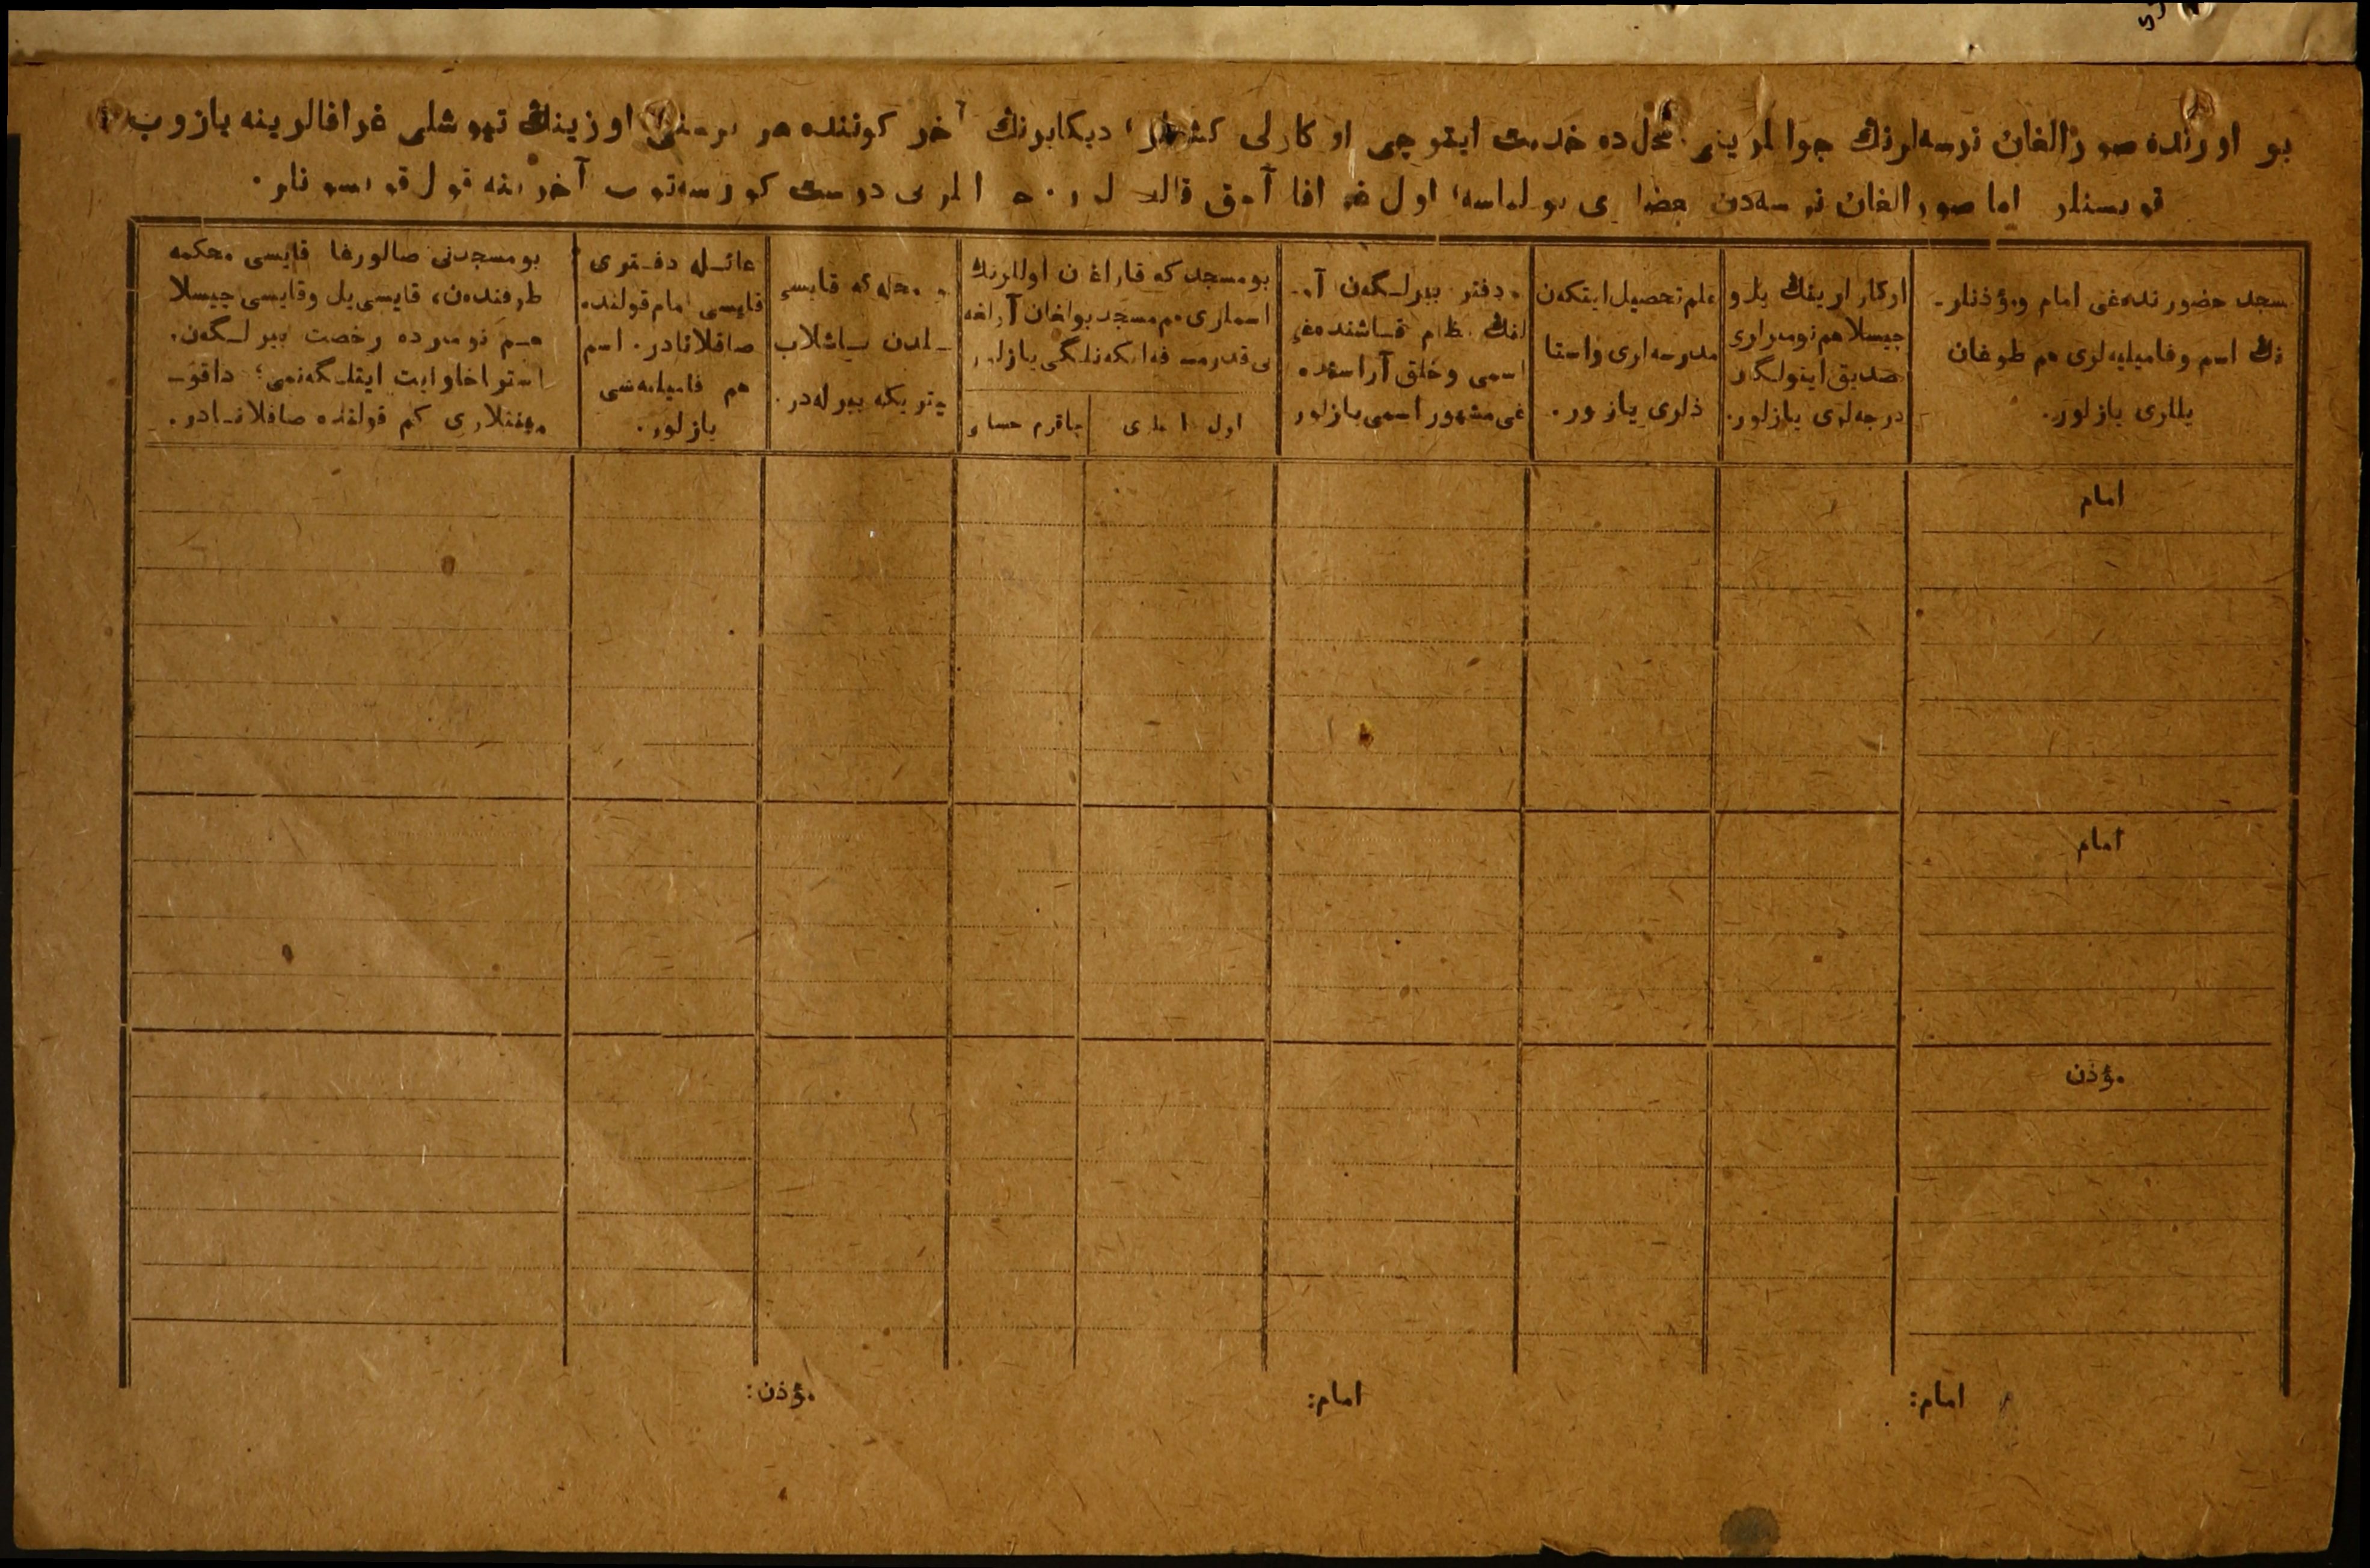 بو اورنده صورالغان نرسه‌لرنڭ جوابلرینی محل‌ده خدمت ایتوچی اوكازلی كشیلر، دیكابرنڭ آخر كوننده هر برسنی اوزینڭ تیوشلی غرافالرینه یازوب
قویسنلر اما صورالغان نرسه‌دن بعضلری بولماسه، اول غرافا آچق قالا آخرینه قول قویسونلر.
مسجد حضورنده‌غی امام ومؤذنلر-
نڭ اسم وفامیلیه‌لری هم طوغان
یللاری یازلور.
اوكازلارینڭ یل و
چیسلا هم نومیرلری
تصدیق ایتولگان
درجه‌لری یازلور.
علم تحصیل ایتكەن
مدرسه‌لری واستا
ذلری یازلور.
دفتر بیرلـگەن آو-
لنڭ نظام قـاشنده‌غی
اسمی وخلق آراسنده
غی مشهور اسمی یازلور
بو مسجد كه قاراغان آوللرنڭ
اسملری هم مسجد بولغان آولغه
نی قدر مسافه ایكەنلـگی یازلور
اول اسملری
چاقرم حسابی
محله‌گه قایسی
یلدن بـاشلاب
میتریكه بیرله‌در.
عائـله دفـتری
قایسی امام قولنده
صاقلانادر. اسم
هم فامیلیه‌سی
یازلور.
بو مسجدنی صالورغا قایسی محكمه
طرفندەن، قایسی یل وقایسی چیسلا
هـم نومیرده رخصت بیرلـگەن.
استراخاوایت ایتلـگەنمی؛ داقو-
مینتلاری كم قولنده صاقلانـادر.
امام
امام
مؤذن
امام:
امام:
مؤذن: